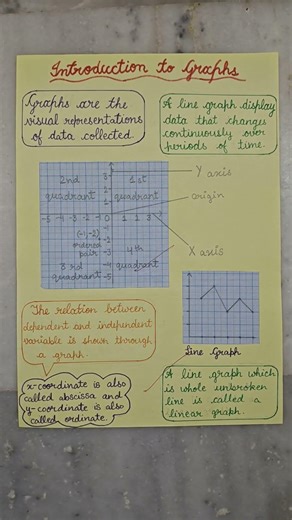 Introduction to Graphs
Graphs are the
visual representations
of data collected.
A line graph display
data that changes
continuously over
periods of time.
2nd
quadrant
1st
quadrant
Y axis
origin
X axis
-5 -4 -3 -2 -1 0
(-1,-2)
ordered
pair
3 rd
quadrant
4th
quadrant
-1
-2
-3
-4
-5
Line Graph
The relation between
dependent and independent
variable is shown through
a graph.
x-coordinate is also
called abscissa and
y-coordinate is also
called ordinate.
A line graph which
is whole unbroken
line is called a
linear graph.